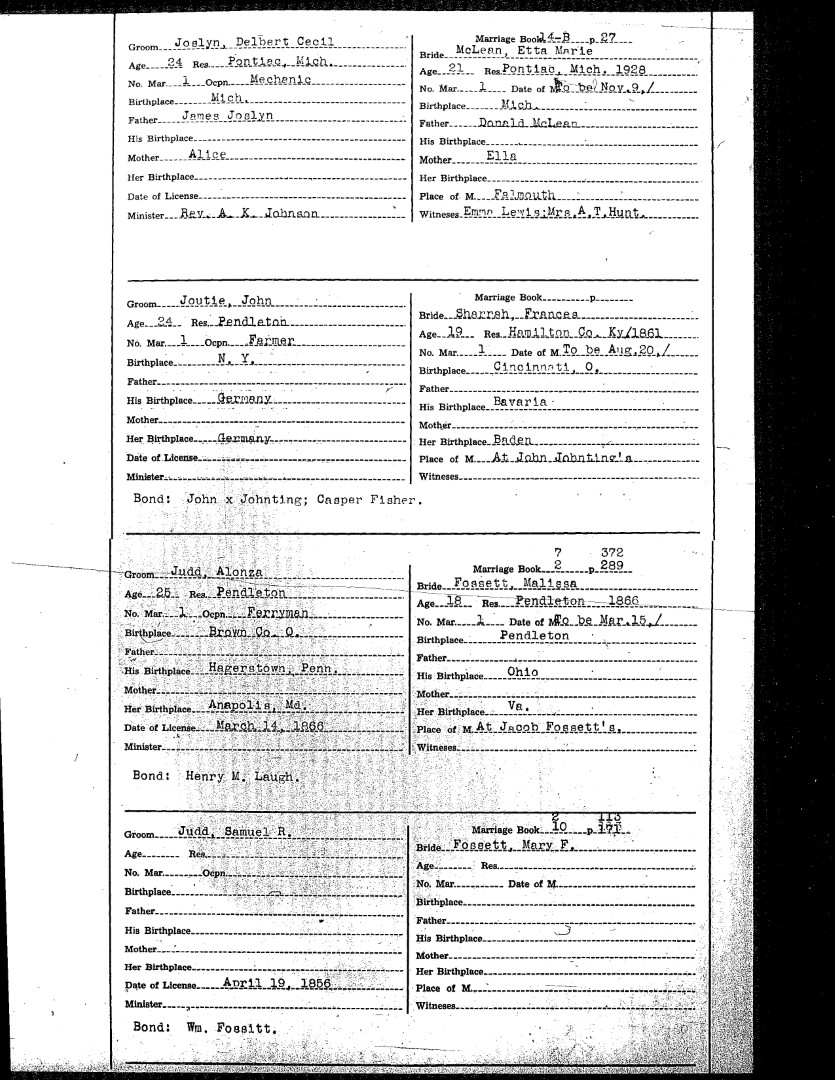 Groom Joslyn, Delbert Cecil
Age 24 Res. Pontiac, Mich.
No. Mar. 1 Ocpn. Mechanic
Birthplace Mich.
Father James Joslyn
His Birthplace
Mother Alice
Her Birthplace
Date of License
Minister Rev. A. K. Johnson
Marriage Book 14-B p. 27
Bride McLean, Etta Marie
Age 21 Res. Pontiac, Mich, 1928
No. Mar. 1 Date of M. To be Nov.9,/
Birthplace Mich.
Father Donald McLean
His Birthplace
Mother Ella
Her Birthplace
Place of M. Falmouth
Witnesses Emma Lewis;Mrs.A.T.Hunt.
Groom Joutie, John
Age 24 Res. Pendleton
No. Mar. 1 Ocpn. Farmer
Birthplace N. Y.
Father
His Birthplace Germany
Mother
Her Birthplace Germany
Date of License
Minister
Marriage Book p.
Bride Sharrah, Frances
Age 19 Res. Hamilton Co. Ky/1861
No. Mar. 1 Date of M. To be Aug.20,/
Birthplace Cincinnati, O.
Father
His Birthplace Bavaria
Mother
Her Birthplace Baden
Place of M. At John Johnting's
Witnesses
Bond: John x Johnting; Casper Fisher.
Groom Judd, Alonza
Age 25 Res. Pendleton
No. Mar. 1 Ocpn. Ferryman
Birthplace Brown Co. O.
Father
His Birthplace Hagerstown, Penn.
Mother
Her Birthplace Anapolis, Md.
Date of License March 14, 1866
Minister
7 372
Marriage Book 2 p. 289
Bride Fossett, Malissa
Age 18 Res. Pendleton 1866
No. Mar. 1 Date of M. To be Mar.15,/
Birthplace Pendleton
Father
His Birthplace Ohio
Mother
Her Birthplace Va.
Place of M. At Jacob Fossett's.
Witnesses
Bond: Henry M. Laugh.
Groom Judd, Samuel R.
Age Res.
No. Mar. Ocpn.
Birthplace
Father
His Birthplace
Mother
Her Birthplace
Date of License April 19, 1856
Minister
2 113
Marriage Book 10 p. 171
Bride Fossett, Mary F.
Age Res.
No. Mar. Date of M.
Birthplace
Father
His Birthplace
Mother
Her Birthplace
Place of M.
Witnesses
Bond: Wm. Fossitt.